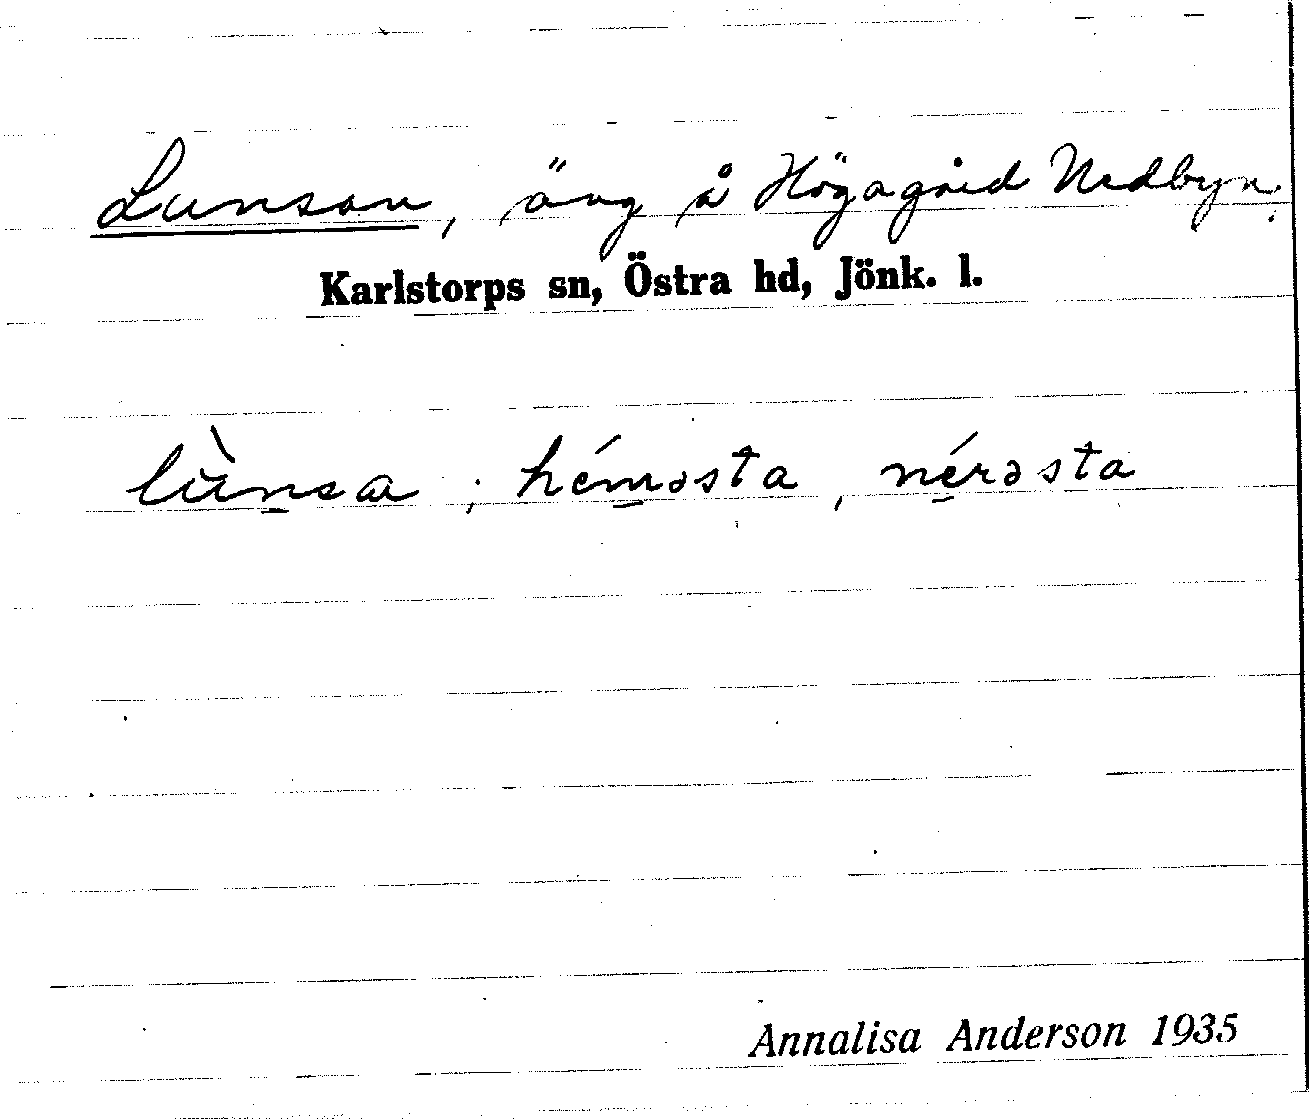 Lunsan, äng å Högagärd Nedbyn.
Karlstorps sn, Östra hd, Jönk. l.
lùnsa ; héməsta , nérəsta
Annalisa Anderson 1935